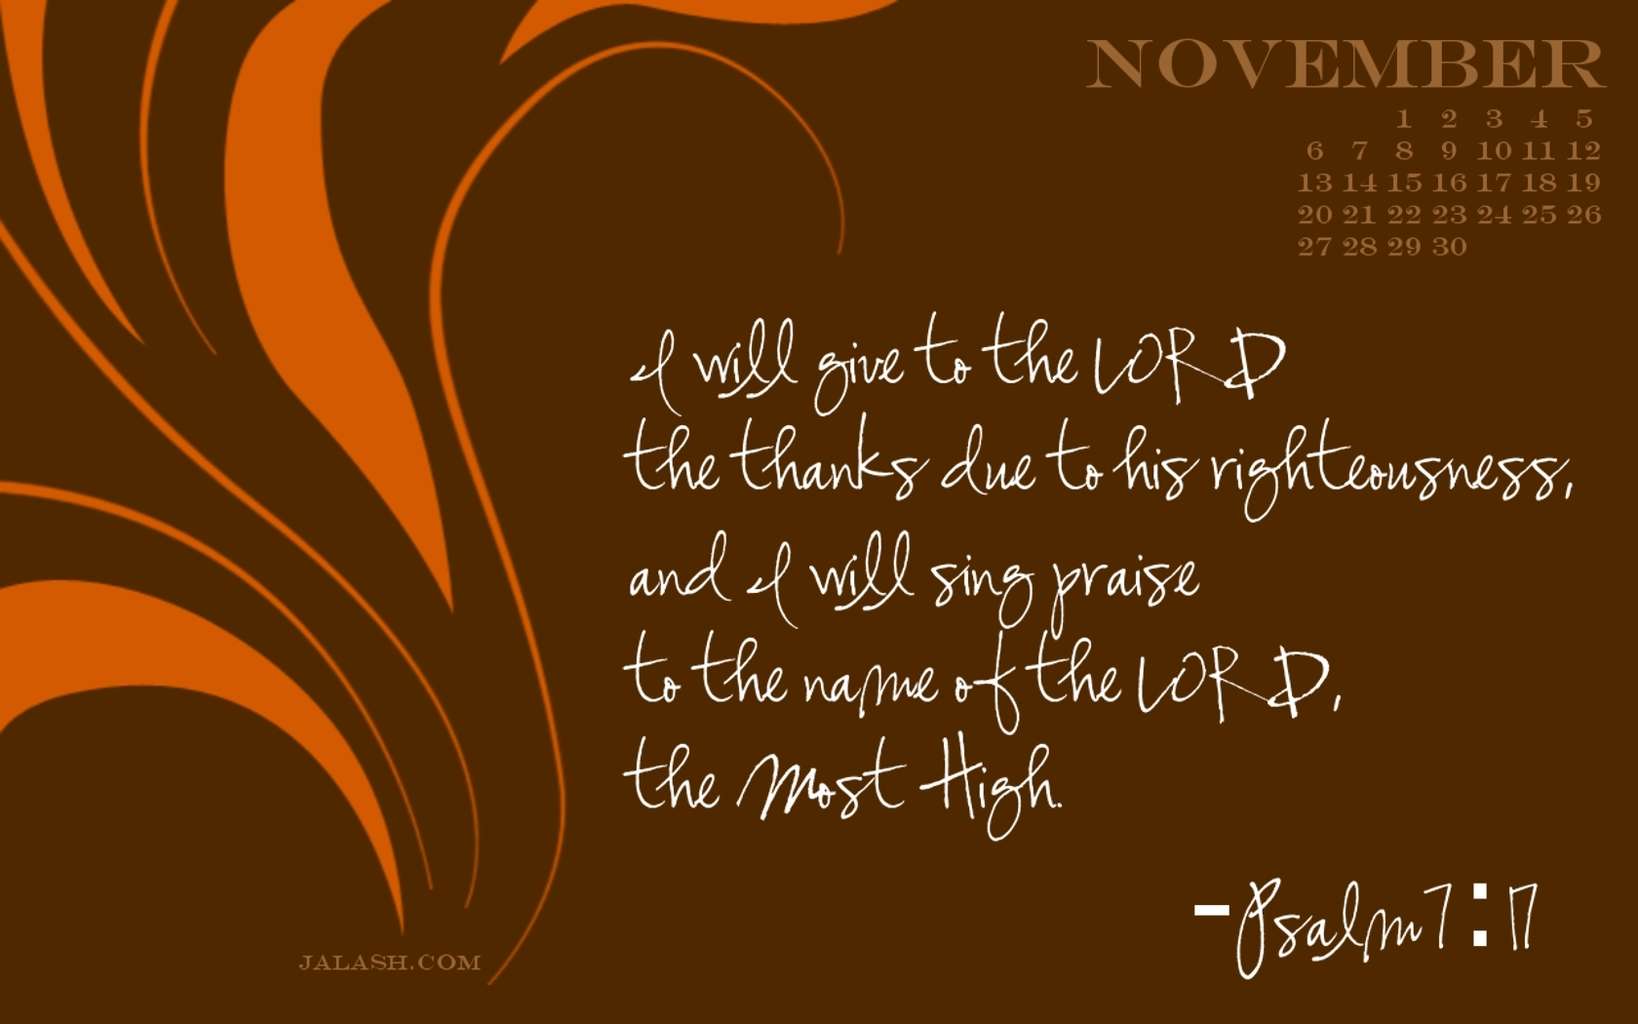 NOVEMBER
1 2 3 4 5
6 7 8 9 10 11 12
13 14 15 16 17 18 19
20 21 22 23 24 25 26
27 28 29 30
I will give to the LORD
the thanks due to his righteousness,
and I will sing praise
to the name of the LORD,
the Most High.
-Psalm 7:17
JALASH.COM